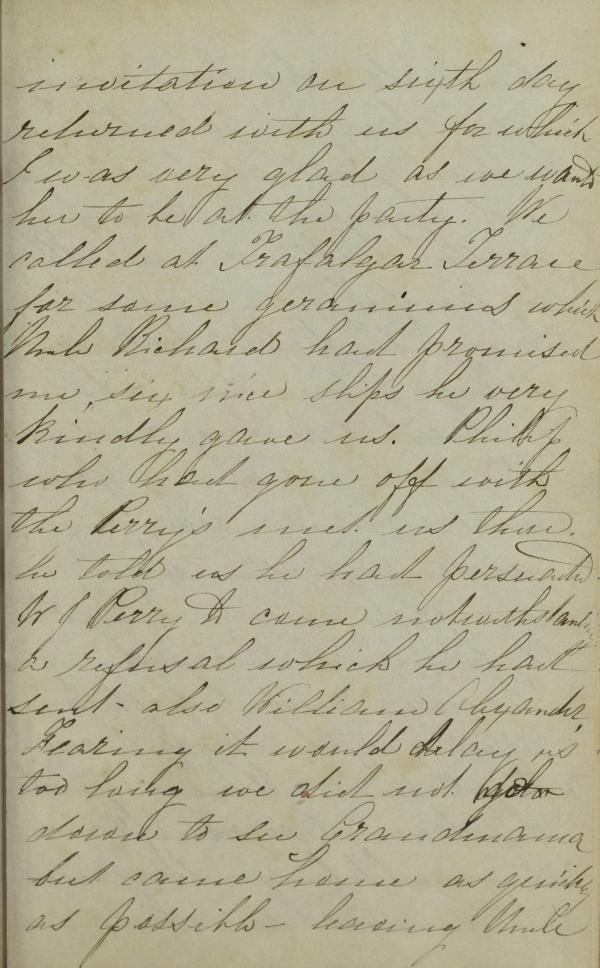 invitation on sixth day
returned with us for which
I was very glad as we wanted
her to be at the party. We
called at Trafalgar Terrace
for some geraniums which
Uncle Richard had promised
me, six nice slips he very
kindly gave us. Philip
who had gone off with
the Perry's met us there.
he told us he had persuaded
W J Perry to come notwithstanding
a refusal which he had
sent - also William Alexander,
Fearing it would delay us
too long we did not go
down to see Grandmama
but came home as quickly
as possible - leaving Uncle